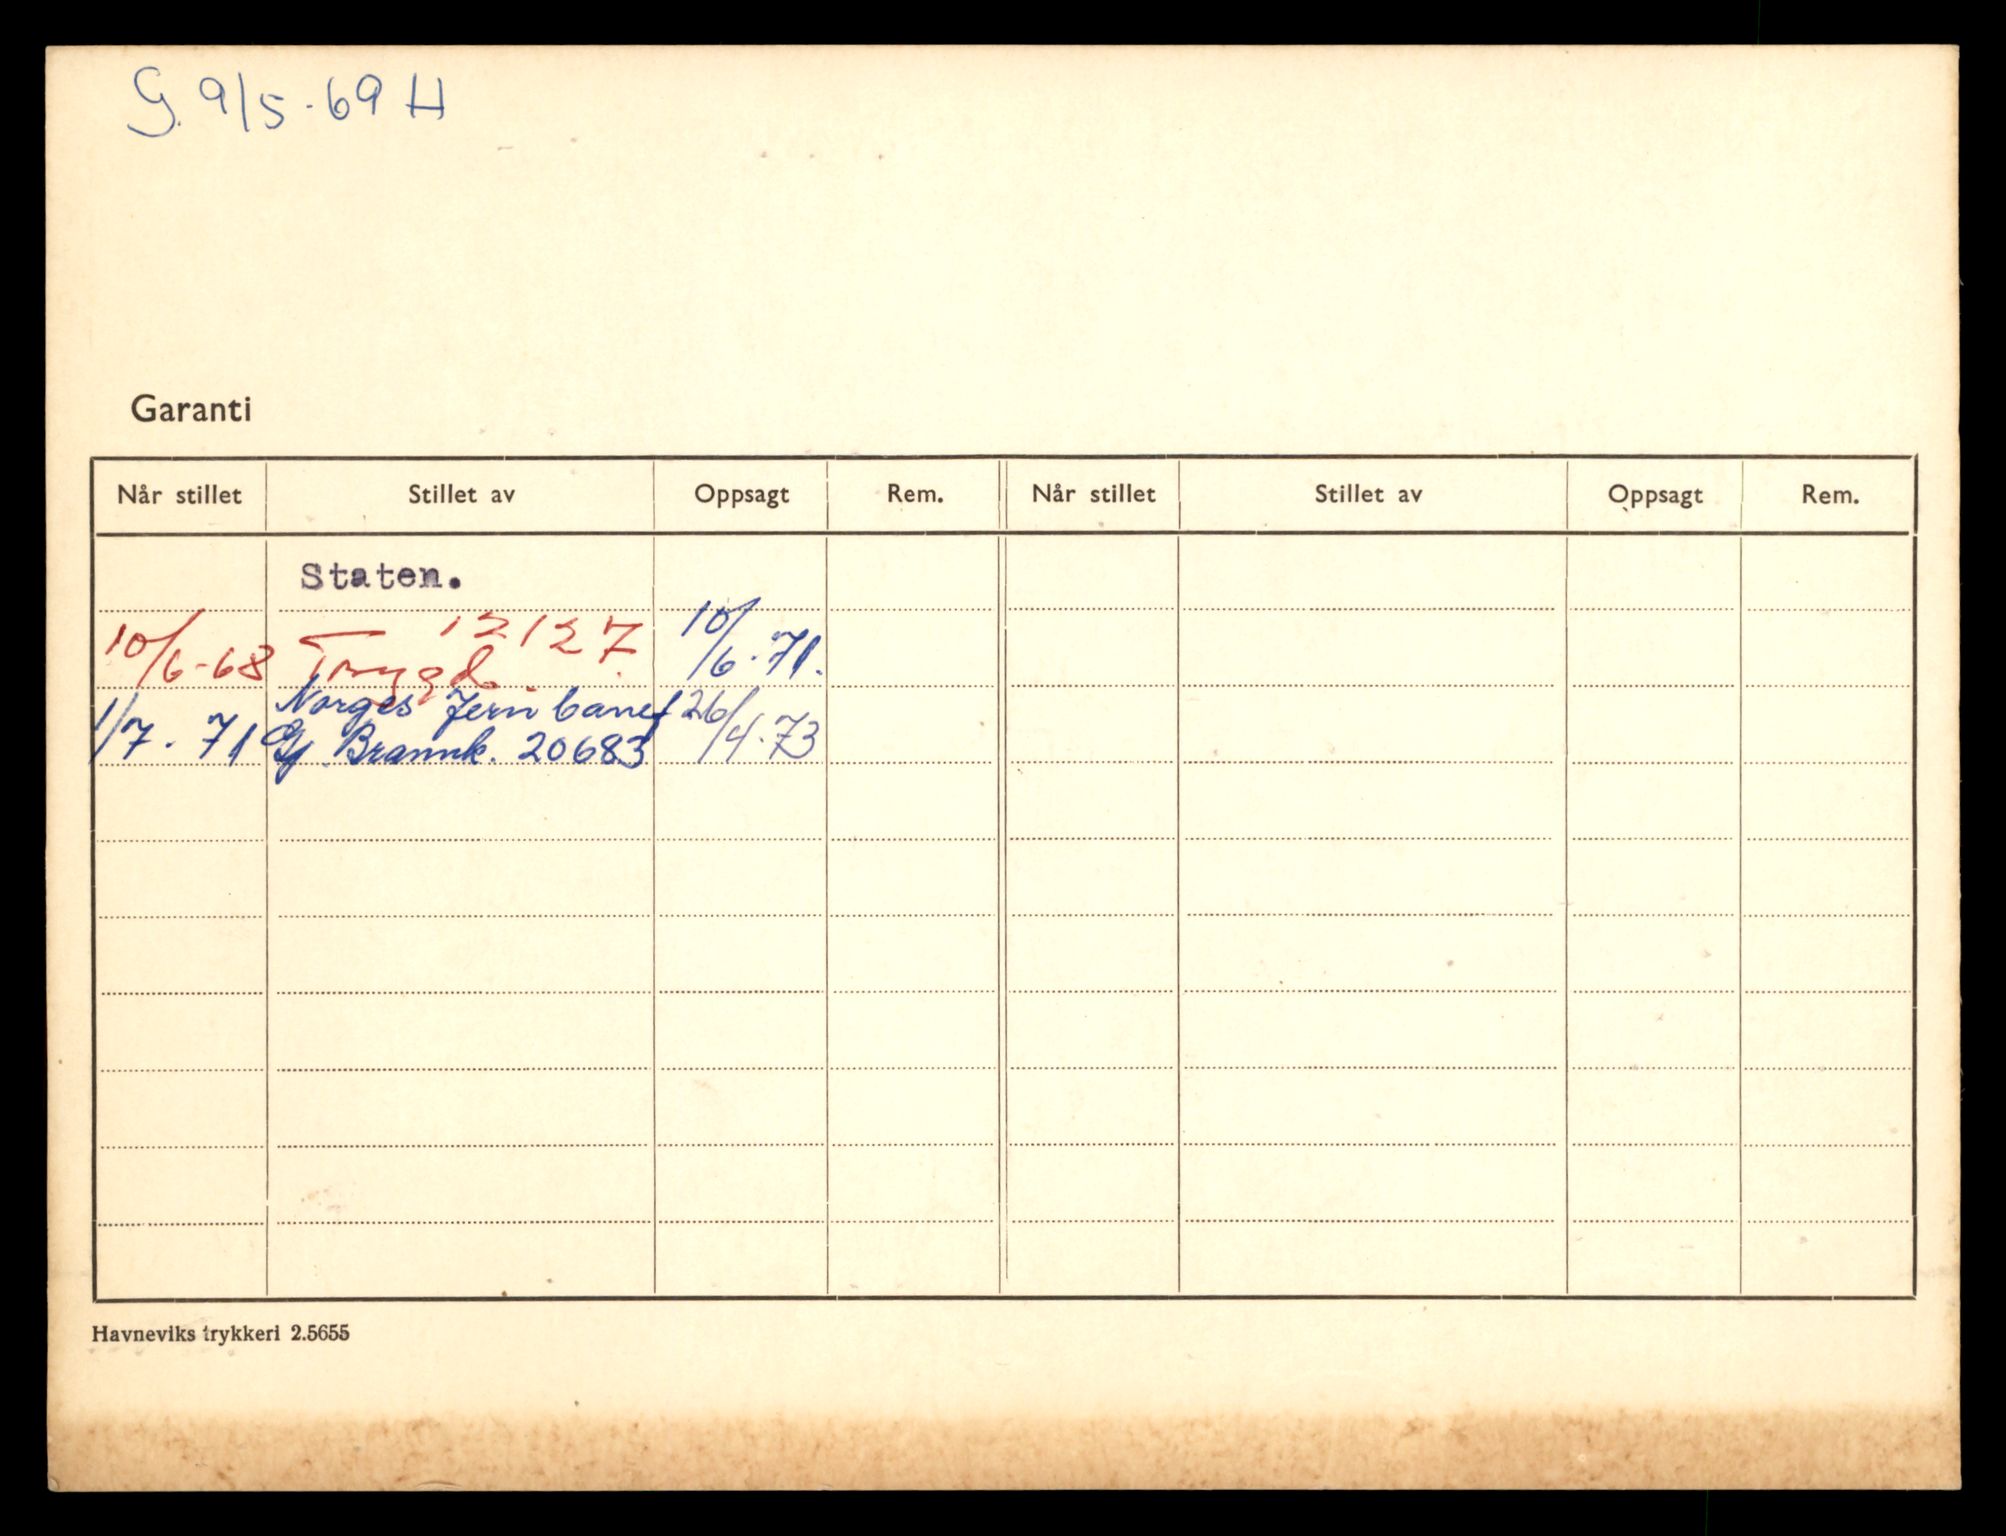 G. 9/5-69 H
Garanti
Når stillet Stillet av Oppsagt Rem. Når stillet Stillet av Oppsagt Rem.
Staten.
10/6-68 Trygd. 12127. 10/6-71.
Norges Jernbanef
1/7.71 Gj. Brannk. 20683 26/4-73
Havneviks trykkeri 2.5655